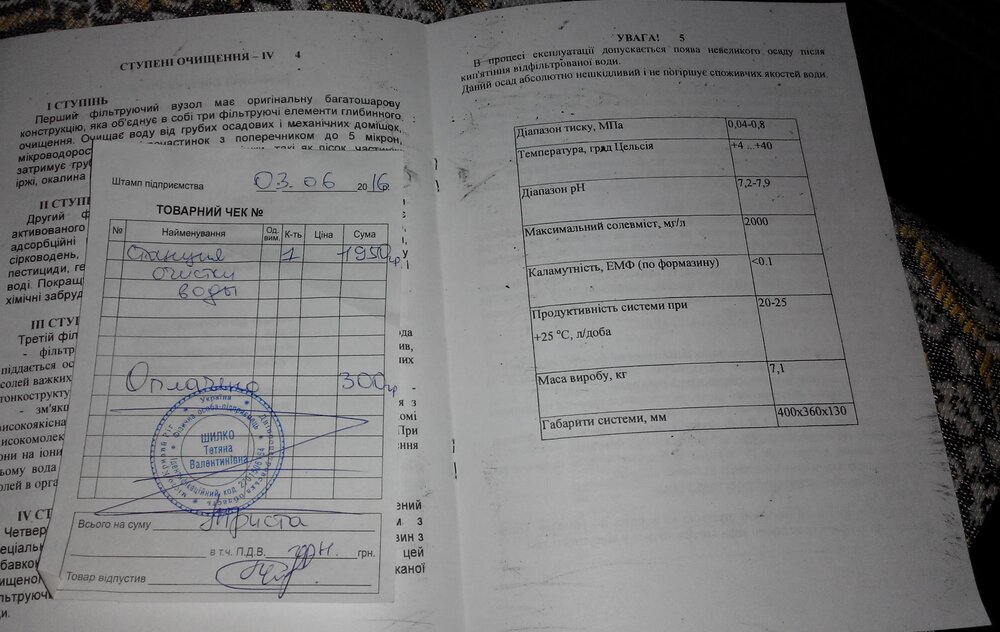 СТУПЕНІ ОЧИЩЕННЯ – IV 4
І СТУПІНЬ
Перший фільтруючий вузол має оригінальну багатошарову
конструкцію, яка об'єднує в собі три фільтруючі елементи глибинного
очищення. Очищає воду від грубих осадових і механічних домішок,
мікроводорост
очастинок з поперечником до 5 мікрон,
затримує груб
такі як пісок, частинки
іржі, окалина
ІІ СТУП
Другий ф
активованого
адсорбційні
сірководень,
пестициди, ге
воді. Покращ
хімічні забруд
ІІІ СТУП
Третій філ
- фільтр
піддається ос
солей важких
тонкострукту
- зм'якц
високоякісна
исокомолек
они на іони
ьому вода
олей в орга
IV СТ
Четвер
еціаль
бавкою
щеної
льтруюч
ди.
Штамп підприємства 03.06 2016
ТОВАРНИЙ ЧЕК №
№ Найменування Од. вим. К-ть Ціна Сума
Станция 1 1950гр
очистки
воды
Оплачено 300гр
Україна
Фізична особа-підприємець
Дніпропетровська область
місто Кривий Ріг
Ідентифікаційний код
ШИЛКО
Тетяна
Валентинівна
Всього на суму Триста
в т.ч. П.Д.В. грн. грн.
Товар відпустив
УВАГА! 5
В процесі експлуатації допускається поява невеликого осаду після
кип'ятіння відфільтрованої води.
Даний осад абсолютно нешкідливий і не погіршує споживчих якостей води.
Діапазон тиску, МПа 0,04-0,8
Температура, град Цельсія +4 ...+40
Діапазон рН 7,2-7,9
Максимальний солевміст, мг/л 2000
Каламутність, ЕМФ (по формазину) <0.1
Продуктивність системи при 20-25
+25 °С, л/доба
Маса виробу, кг 7,1
Габарити системи, мм 400х360х130